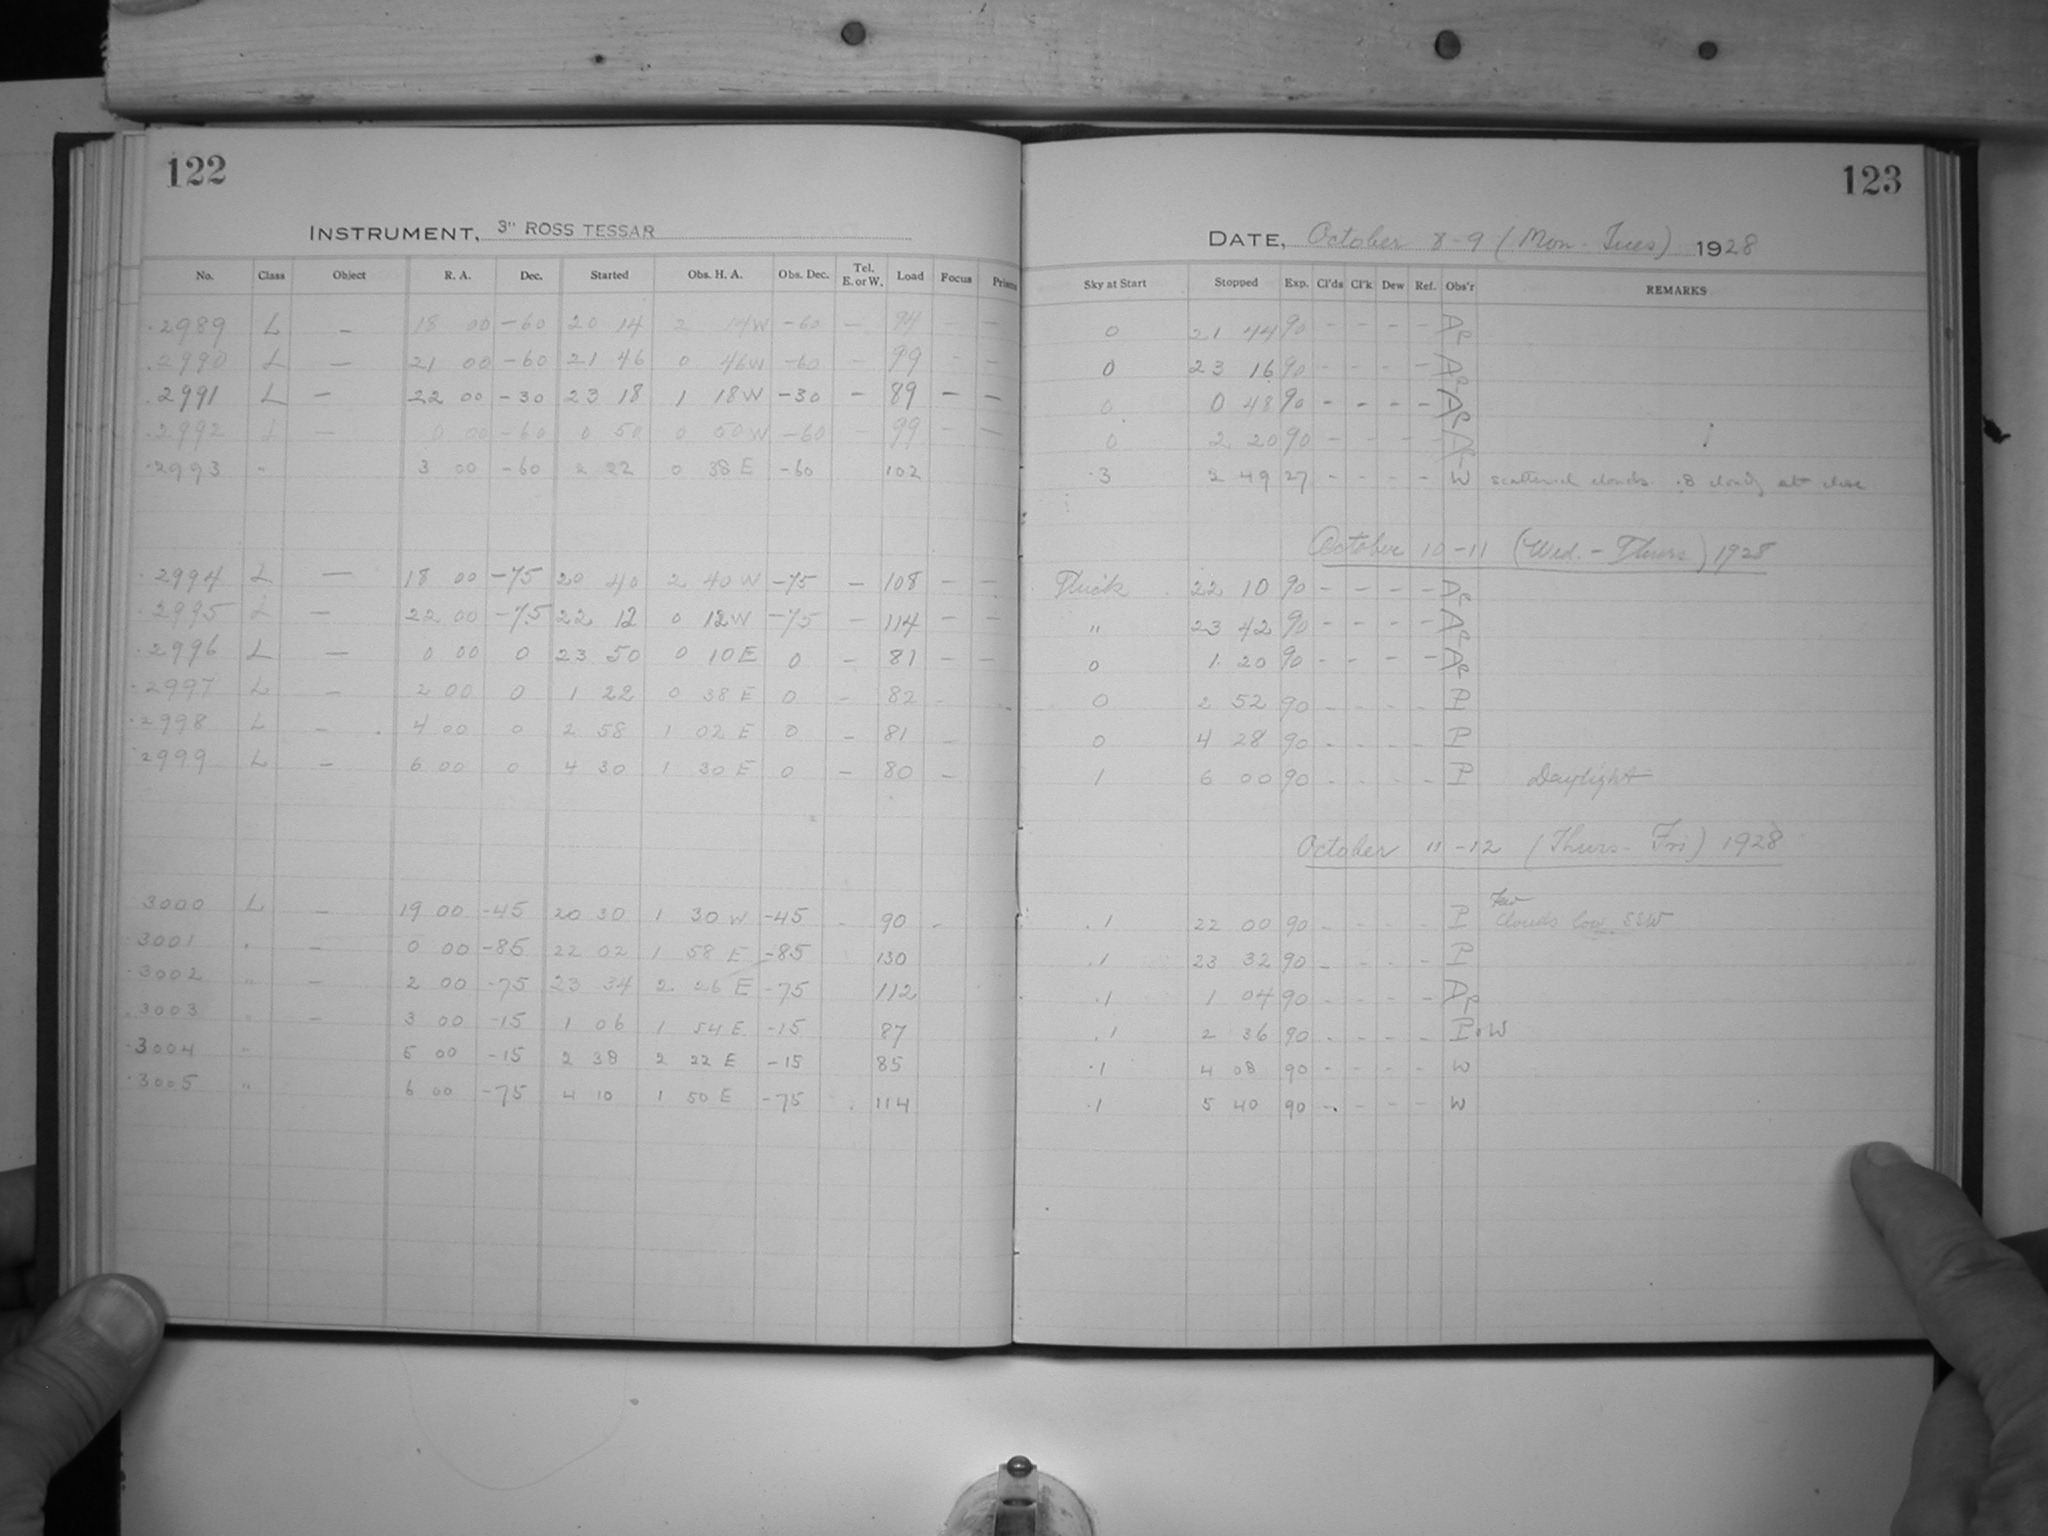 122
INSTRUMENT, 3" ROSS TESSAR
No. Class Object R. A. Dec. Started Obs. H. A. Obs. Dec. Tel. E. or W. Load Focus Prisms
.2989 L — 18 00 -60 20 14 2 14W -60 — 94 — —
.2990 L — 21 00 -60 21 46 0 46W -60 — 99 — —
.2991 L — 22 00 -30 23 18 1 18W -30 — 89 — —
.2992 L — 0 00 -60 0 50 0 50W -60 — 99 — —
.2993 " 3 00 -60 2 22 0 38 E -60 102
.2994 L — 18 00 -75 20 40 2 40 W -75 — 108 — —
.2995 L — 22 00 -75 22 12 0 12W -75 — 114 — —
.2996 L — 0 00 0 23 50 0 10 E 0 — 81 — —
.2997 L — 2 00 0 1 22 0 38 E 0 — 82 -
.2998 L — 4 00 0 2 58 1 02 E 0 — 81 —
.2999 L — 6 00 0 4 30 1 30 E 0 — 80 —
3000 L — 19 00 -45 20 30 1 30 W -45 - 90 -
.3001 " — 0 00 -85 22 02 1 58 E -85 130
.3002 " — 2 00 -75 23 34 2 26 E -75 112
.3003 " — 3 00 -15 1 06 1 54 E -15 87
.3004 " 5 00 -15 2 38 2 22 E -15 85
.3005 " 6 00 -75 4 10 1 50 E -75 114
123
DATE, October 8-9 (Mon-Tues) 1928
Sky at Start Stopped Exp. Cl'ds Cl'k Dew Ref. Obs'r REMARKS
0 21 44 90 - - - -
0 23 16 90 - - - -
0 0 48 90 - - - -
0 2 20 90 - - - -
.3 2 49 27 - - - - W scattered clouds .8 cloudy at close
October 10-11 (Wed.-Thurs) 1928
Thick 22 10 90 - - - -
" 23 42 90 - - - -
0 1 20 90 - - - -
0 2 52 90 - - - - P
0 4 28 90 - - - - P
1 6 00 90 - - - - P Daylight
October 11-12 (Thurs-Fri) 1928
.1 22 00 90 - - - - P Few clouds low SSW
.1 23 32 90 - - - - P
.1 1 04 90 - - - -
.1 2 36 90 - - - - P.W
.1 4 08 90 - - - - W
.1 5 40 90 - - - - W